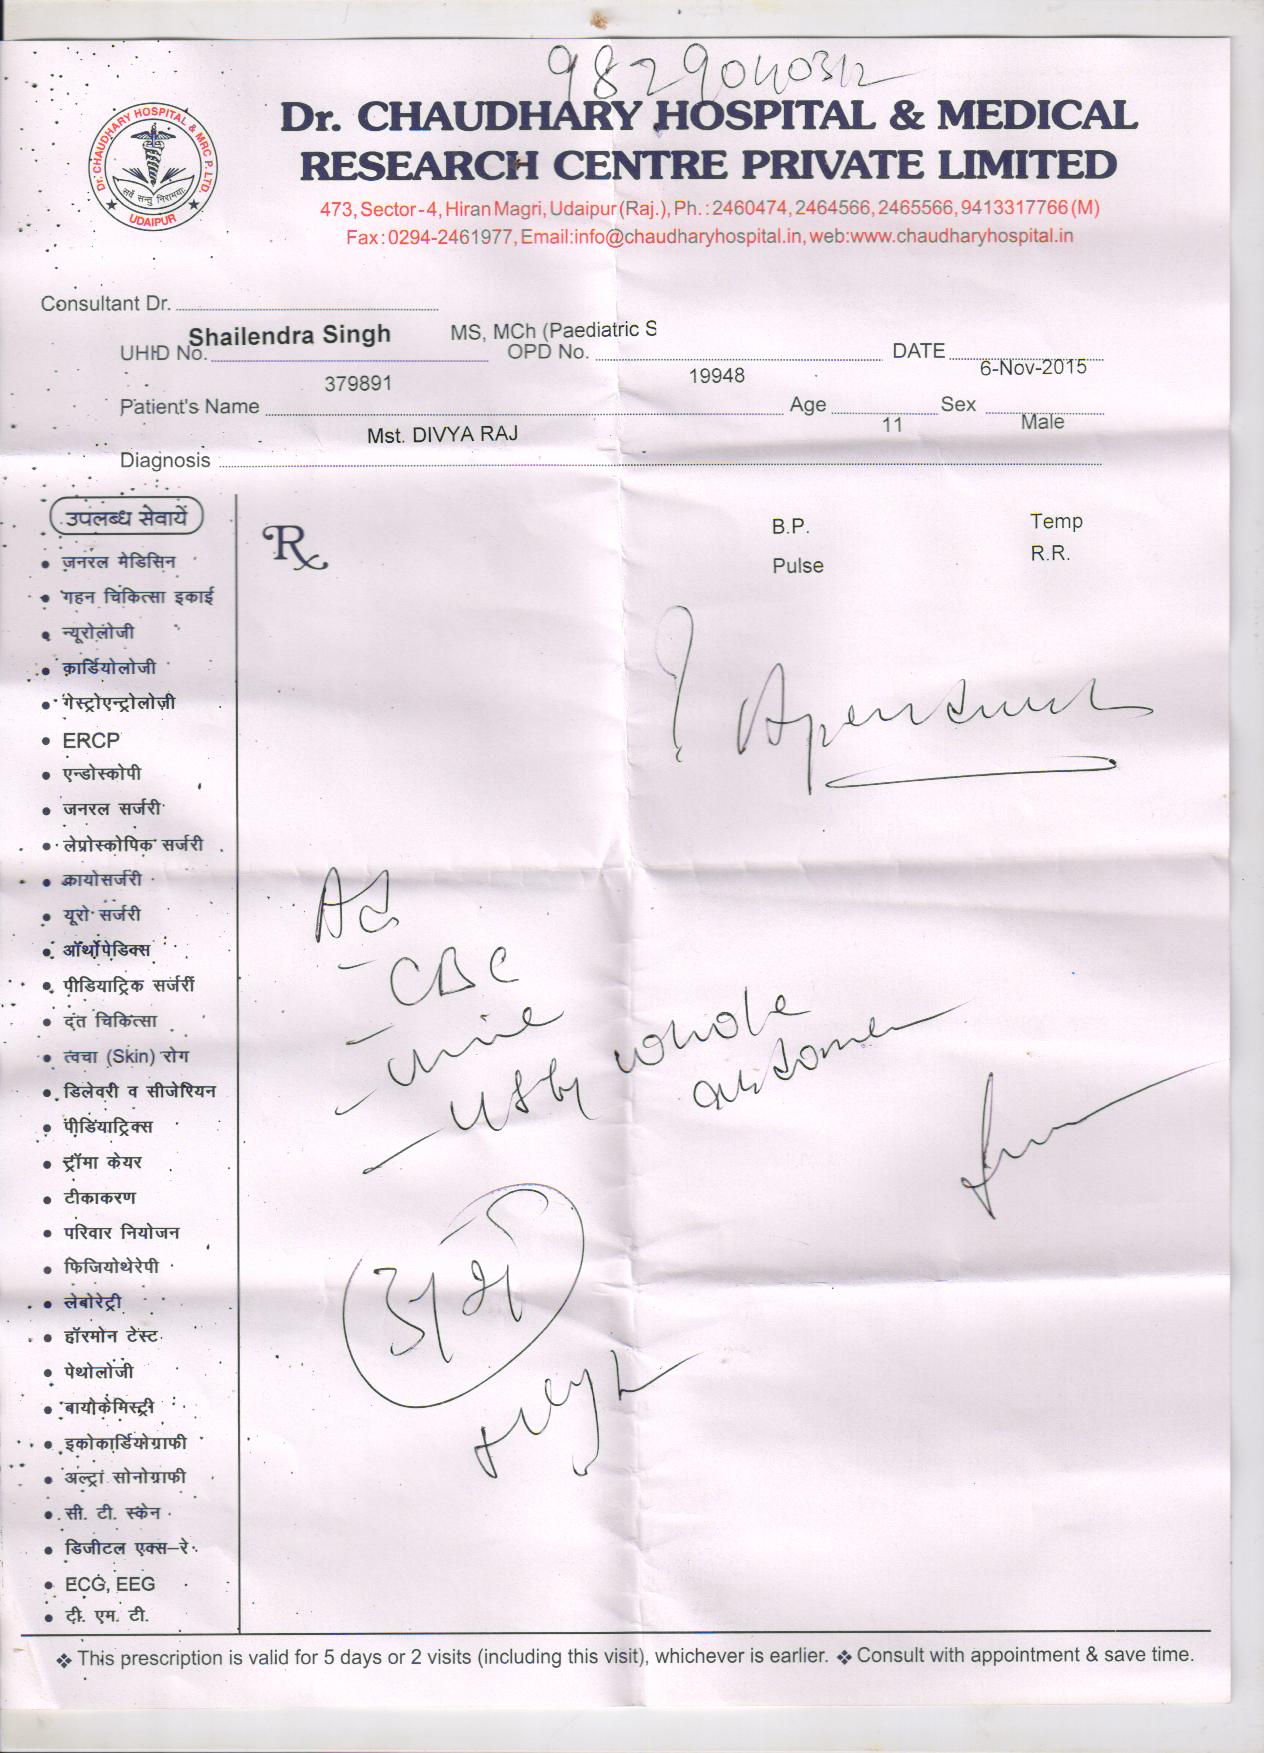 9829040312
Dr. CHAUDHARY HOSPITAL & MRC P. LTD.
सर्वे सन्तु निरामयाः
UDAIPUR
Dr. CHAUDHARY HOSPITAL & MEDICAL
RESEARCH CENTRE PRIVATE LIMITED
473, Sector-4, Hiran Magri, Udaipur (Raj.), Ph.: 2460474, 2464566, 2465566, 9413317766 (M)
Fax: 0294-2461977, Email:info@chaudharyhospital.in, web:www.chaudharyhospital.in
Consultant Dr.
Shailendra Singh MS, MCh (Paediatric S
UHID No. OPD No. DATE
379891 19948 6-Nov-2015
Patient's Name Age Sex
Mst. DIVYA RAJ 11 Male
Diagnosis
उपलब्ध सेवायें
• जनरल मेडिसिन
• गहन चिकित्सा इकाई
• न्यूरोलोजी
• कार्डियोलोजी
• गेस्ट्रोएन्ट्रोलोज़ी
• ERCP
• एन्डोस्कोपी
• जनरल सर्जरी
• लेप्रोस्कोपिक सर्जरी
• क्रायोसर्जरी
• यूरो सर्जरी
• ऑर्थोपेडिक्स
• पीडियाट्रिक सर्जरी
• दंत चिकित्सा
• त्वचा (Skin) रोग
• डिलेवरी व सीजेरियन
• पीडियाट्रिक्स
• ट्रॉमा केयर
• टीकाकरण
• परिवार नियोजन
• फिजियोथेरेपी
• लेबोरेट्री
• हॉरमोन टेस्ट
• पेथोलोजी
• बायोकेमिस्ट्री
• इकोकार्डियोग्राफी
• अल्ट्रा सोनोग्राफी
• सी. टी. स्केन
• डिजीटल एक्स-रे
• ECG, EEG
• टी. एम. टी.
Rx
B.P. Temp
Pulse R.R.
?
- CBC
- Urine
- USG whole
❖ This prescription is valid for 5 days or 2 visits (including this visit), whichever is earlier. ❖ Consult with appointment & save time.